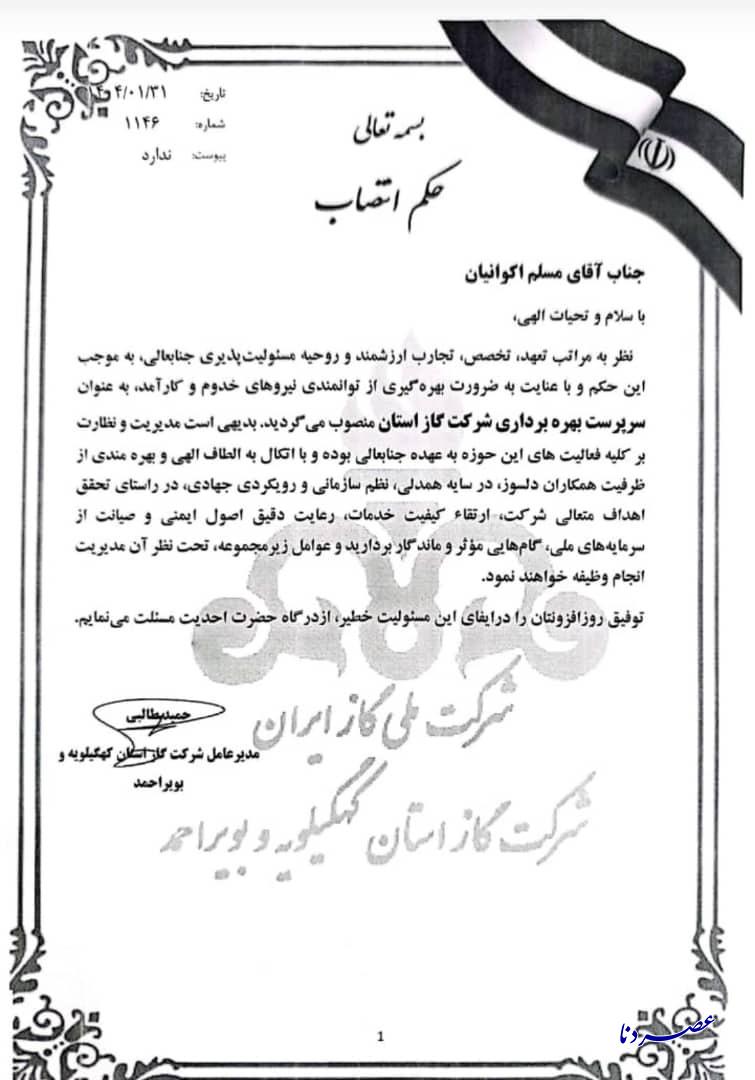 تاریخ: ۴/۰۱/۳۱
شماره: ۱۱۴۶
پیوست: ندارد
بسمه تعالی
حکم انتصاب
جناب آقای مسلم اکوانیان
با سلام و تحیات الهی،
نظر به مراتب تعهد، تخصص، تجارب ارزشمند و روحیه مسئولیت‌پذیری جنابعالی، به موجب
این حکم و با عنایت به ضرورت بهره‌گیری از توانمندی نیروهای خدوم و کارآمد، به عنوان
سرپرست بهره برداری شرکت گاز استان منصوب می‌گردید. بدیهی است مدیریت و نظارت
بر کلیه فعالیت های این حوزه به عهده جنابعالی بوده و با اتکال به الطاف الهی و بهره مندی از
ظرفیت همکاران دلسوز، در سایه همدلی، نظم سازمانی و رویکردی جهادی، در راستای تحقق
اهداف متعالی شرکت، ارتقاء کیفیت خدمات، رعایت دقیق اصول ایمنی و صیانت از
سرمایه‌های ملی، گام‌هایی مؤثر و ماندگار بردارید و عوامل زیرمجموعه، تحت نظر آن مدیریت
انجام وظیفه خواهند نمود.
توفیق روزافزونتان را درایفای این مسئولیت خطیر، ازدرگاه حضرت احدیت مسئلت می‌نمایم.
حمید طالبی
مدیرعامل شرکت گاز استان کهگیلویه و
بویراحمد
شرکت ملی گاز ایران
شرکت گاز استان کهگیلویه و بویراحمد
1
عصر دنا